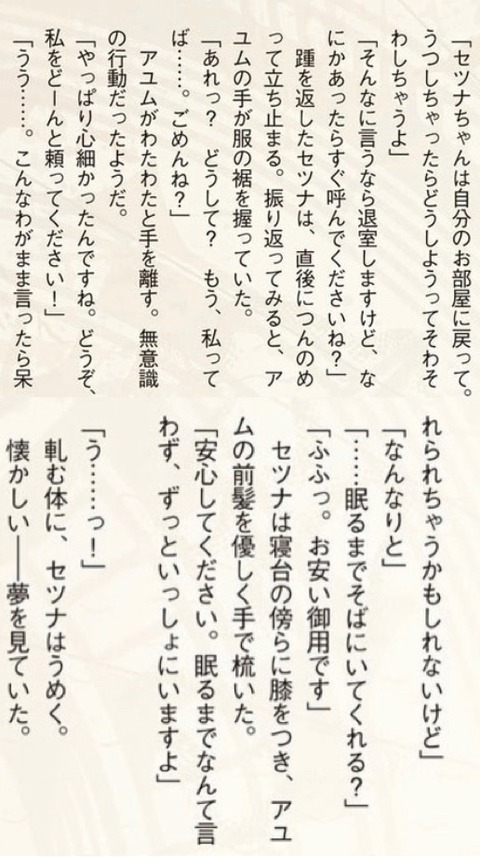 「セツナちゃんは自分のお部屋に戻って。
うつしちゃったらどうしようってそわそ
わしちゃうよ」
「そんなに言うなら退室しますけど、な
にかあったらすぐ呼んでくださいね？」
　踵を返したセツナは、直後につんのめ
って立ち止まる。振り返ってみると、ア
ユムの手が服の裾を握っていた。
「あれっ？　どうして？　もう、私って
ば……。ごめんね？」
　アユムがわたわたと手を離す。無意識
の行動だったようだ。
「やっぱり心細かったんですね。どうぞ、
私をどーんと頼ってください！」
「うう……。こんなわがまま言ったら呆
れられちゃうかもしれないけど」
「なんなりと」
「……眠るまでそばにいてくれる？」
「ふふっ。お安い御用です」
　セツナは寝台の傍らに膝をつき、アユ
ムの前髪を優しく手で梳いた。
「安心してください。眠るまでなんて言
わず、ずっといっしょにいますよ」
「う……っ！」
　軋む体に、セツナはうめく。
　懐かしい――夢を見ていた。